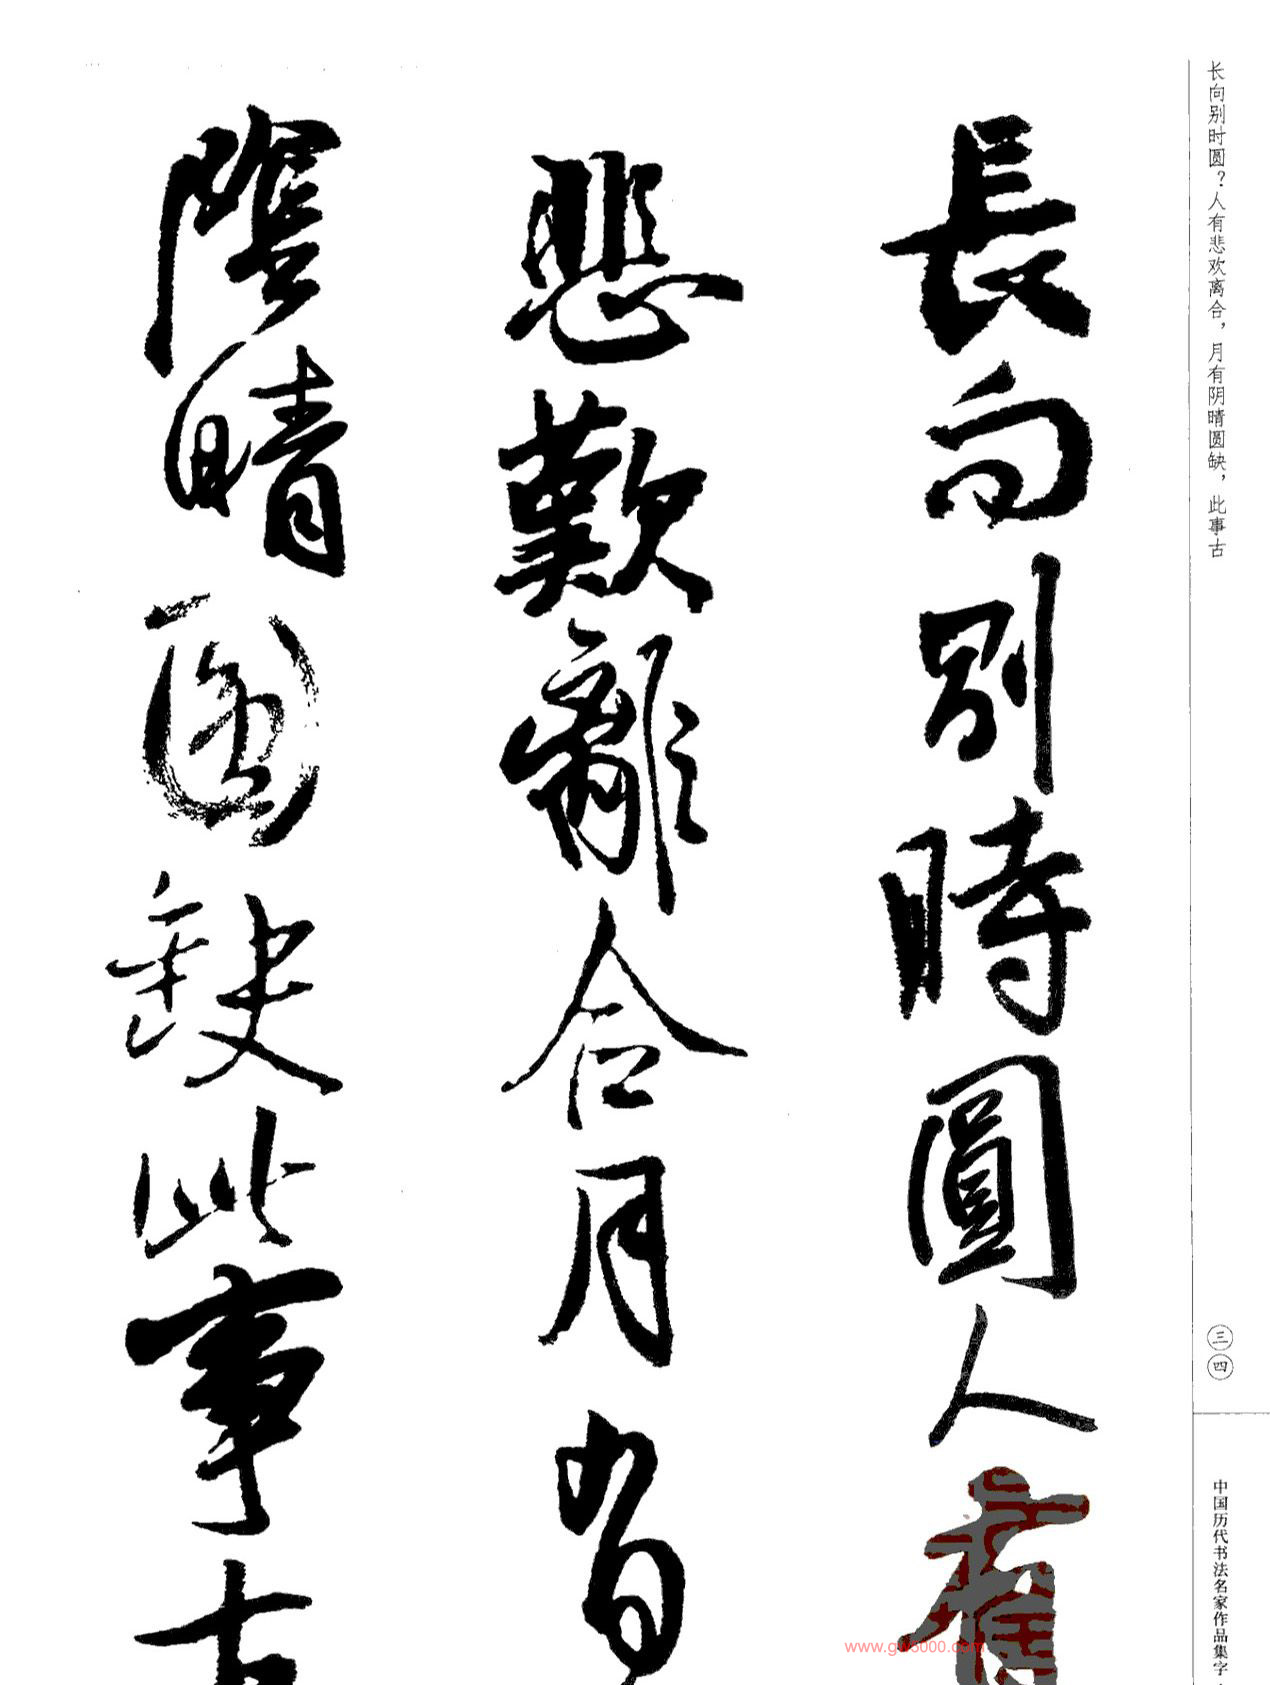 长向别时圆？人有悲欢离合，月有阴晴圆缺，此事古
三四
中国历代书法名家作品集字·
長向別時圓人有
悲歡離合月有
陰晴圓缺此事古